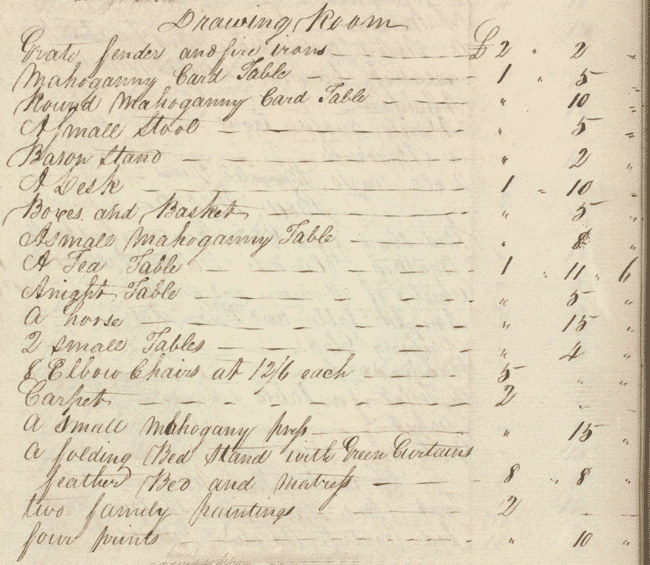 Drawing Room
Grate fender and fire irons — — — — £ 2 " 2 "
Mahoganny Card Table — — — — — 1 " 5 "
Round Mahoganny Card Table — — — " 10 "
A small Stool — — — — — — — — " 5 "
Bason Stand — — — — — — — — " 2 "
A Desk — — — — — — — — — 1 " 10 "
Boxes and Basket — — — — — — " 5 "
A small Mahoganny Table — — — — " 8 "
A Tea Table — — — — — — — — 1 " 11 " 6
A night Table — — — — — — — — " 5 "
A horse — — — — — — — — — " 15 "
2 small Tables — — — — — — — " 4 "
8 Elbow Chairs at 12/6 each — — — 5 " "
Carpet — — — — — — — — — 2 " "
A small Mahogany press — — — — " 15 "
A folding Bed Stand with Green Curtains
feather Bed and Matress — — — 8 " 8 "
two family paintings — — — — — 2 — —
four prints — — — — — — — — " 10 "